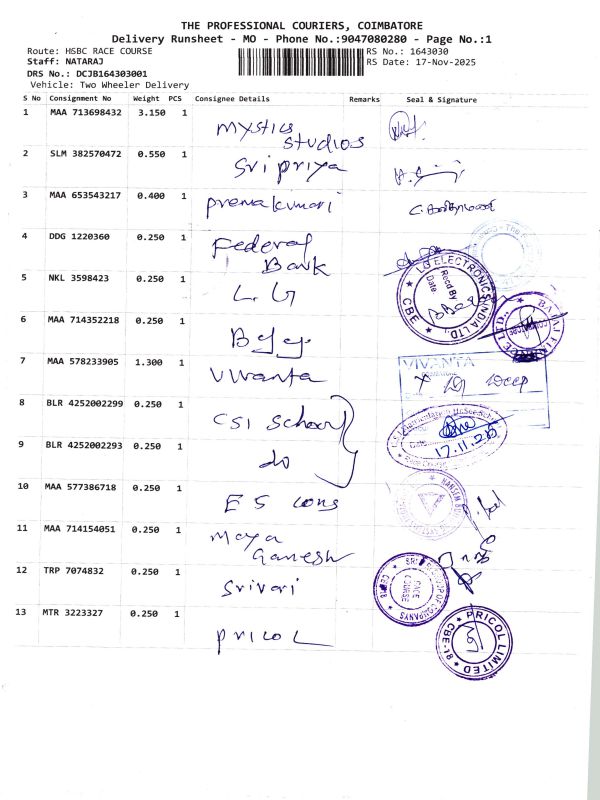 THE PROFESSIONAL COURIERS, COIMBATORE
Delivery Runsheet - MO - Phone No.:9047080280 - Page No.:1
Route: HSBC RACE COURSE
RS No.: 1643030
Staff: NATARAJ
RS Date: 17-Nov-2025
DRS No.: DCJB164303001
Vehicle: Two Wheeler Delivery
S No Consignment No Weight PCS Consignee Details Remarks Seal & Signature
1 MAA 713698432 3.150 1 Mystics
Studios
2 SLM 382570472 0.550 1 Sri priya
3 MAA 653543217 0.400 1 premakumari
4 DDG 1220360 0.250 1 Federal
Bank
5 NKL 3598423 0.250 1 L.G
LG ELECTRONICS INDIA LTD.
Recd By
Date
CBE
6 MAA 714352218 0.250 1
BAJAJ
7 MAA 578233905 1.300 1 Vivanta
VIVANTA
8 BLR 4252002299 0.250 1 CSI School
Date
17.11.25
9 BLR 4252002293 0.250 1 do
10 MAA 577386718 0.250 1 E S cons
11 MAA 714154051 0.250 1 Maya
Ganesh
12 TRP 7074832 0.250 1 Srivari
RACE COURSE
13 MTR 3223327 0.250 1 pricol
PRICOL LIMITED
CBE-18